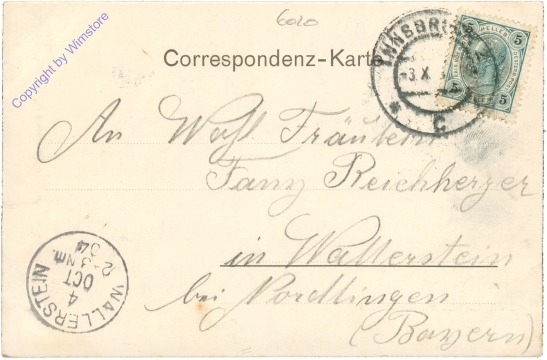 6020
Copyright by Wimstore
Correspondenz-Karte
INNSBR
3.X
C
5 HELLER 5
5 5
An Wohl. Fräulein
Fany Reichherzer
in Wallerstein
bei Nördlingen
(Bayern)
WALLERSTEIN
4
OCT
2-3 Nm.
04